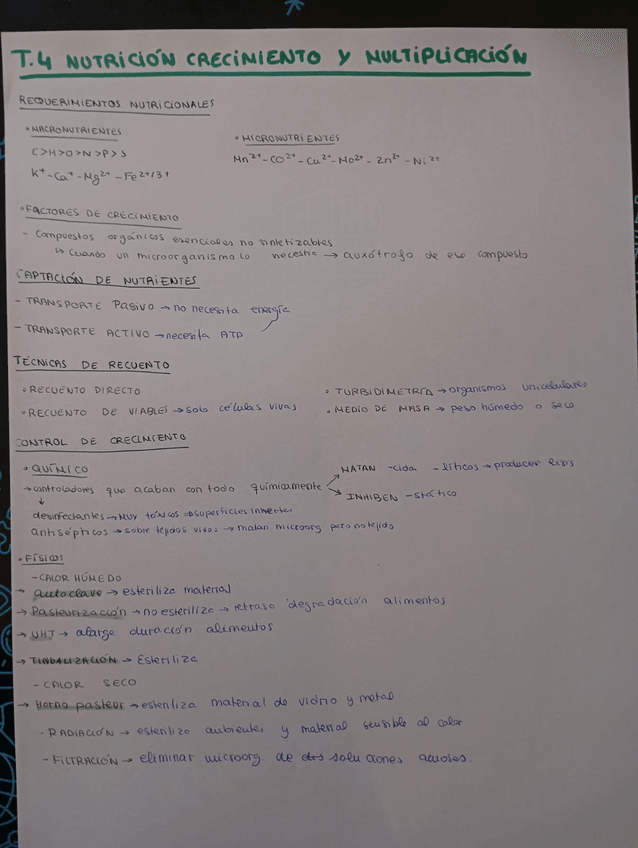 T.4 NUTRICIÓN CRECIMIENTO Y MULTIPLICACIÓN
REQUERIMIENTOS NUTRICIONALES
• MACRONUTRIENTES
C>H>O>N>P>S
K⁺-Ca⁺-Mg²⁺-Fe²⁺/³⁺
• MICRONUTRIENTES
Mn²⁺-CO²⁺-Cu²⁺-Mo²⁺-Zn²⁺-Ni²⁺
• FACTORES DE CRECIMIENTO
- Compuestos orgánicos esenciales no sintetizables
↳ Cuando un microorganismo lo necesite → auxótrofo de ese compuesto
CAPTACIÓN DE NUTRIENTES
- TRANSPORTE PASIVO → no necesita energía
- TRANSPORTE ACTIVO → necesita ATP
TÉCNICAS DE RECUENTO
• RECUENTO DIRECTO
• RECUENTO DE VIABLES → solo células vivas
• TURBIDIMETRÍA → organismos unicelulares
• MEDIO DE MASA → peso húmedo o seco
CONTROL DE CRECIMIENTO
• QUÍMICO
→ controladores que acaban con todo químicamente
MATAN -cida - líticos → producen lisis
INHIBEN - stático
↓
desinfectantes → MUY tóxicos ⇒ superficies inhertes
antisépticos → sobre tejidos vivos → matan microorg pero no tejido
• FÍSICOS
- CALOR HÚMEDO
→ autoclave → esteriliza material
→ Pasteurización → no esteriliza → retrasa degradación alimentos
→ UHT → alarga duración alimentos
→ TINDALIZACIÓN → Esteriliza
- CALOR SECO
→ Horno pasteur → esteriliza material de vidrio y metal
- RADIACIÓN → esteriliza ambientes y material sensible al calor
- FILTRACIÓN → eliminar microorg. de soluciones acuosas.